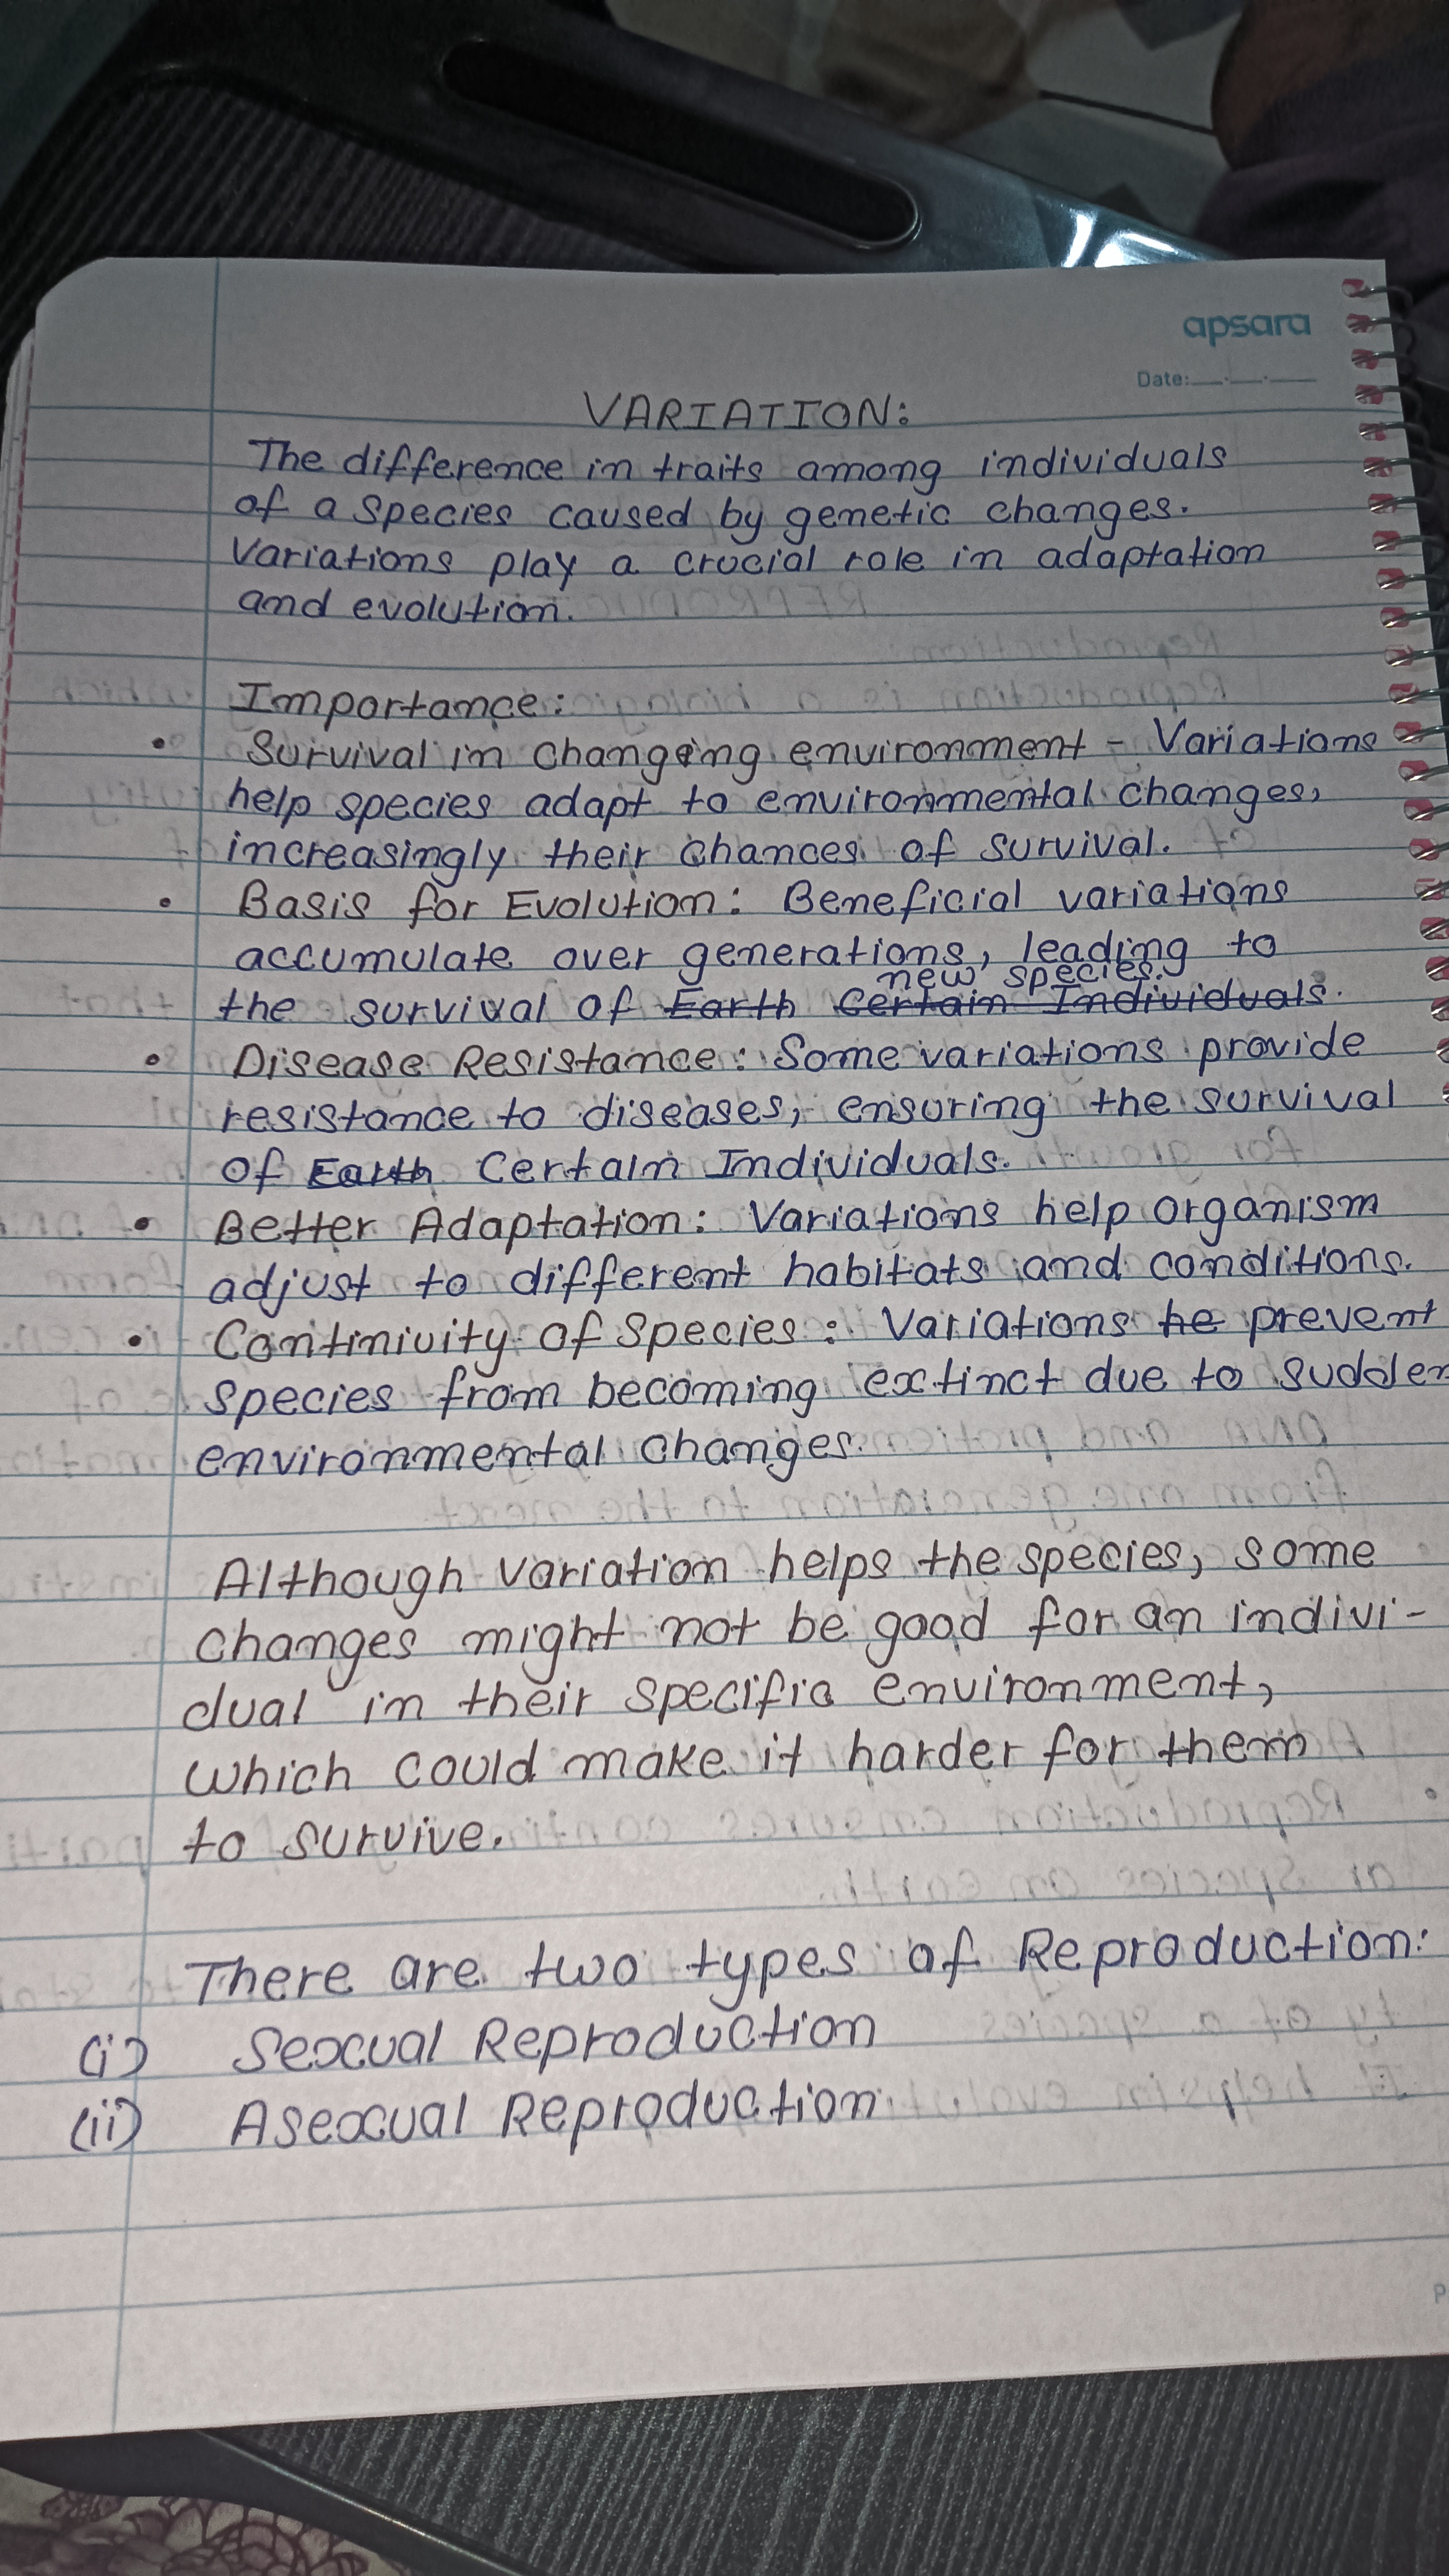 apsara
Date:
VARIATION:
The difference in traits among individuals
of a species caused by genetic changes.
Variations play a crucial role in adaptation
and evolution.
Importance:
• Survival in changeing environment - Variations
help species adapt to environmental changes,
increasingly their chances of survival.
• Basis for Evolution: Beneficial variations
accumulate over generations, leading to
new species.
the survival of Earth Certain Individuals.
• Disease Resistance: Some variations provide
resistance to diseases, ensuring the survival
of Earth Certain Individuals.
• Better Adaptation: Variations help organism
adjust to different habitats and conditions.
• Continivity of Species: Variations he prevent
species from becoming extinct due to sudden
environmental changes.
Although variation helps the species, some
changes might not be good for an indivi-
dual in their specific environment,
which could make it harder for them
to survive.
There are two types of Reproduction:
(i) Sexual Reproduction
(ii) Asexual Reproduction